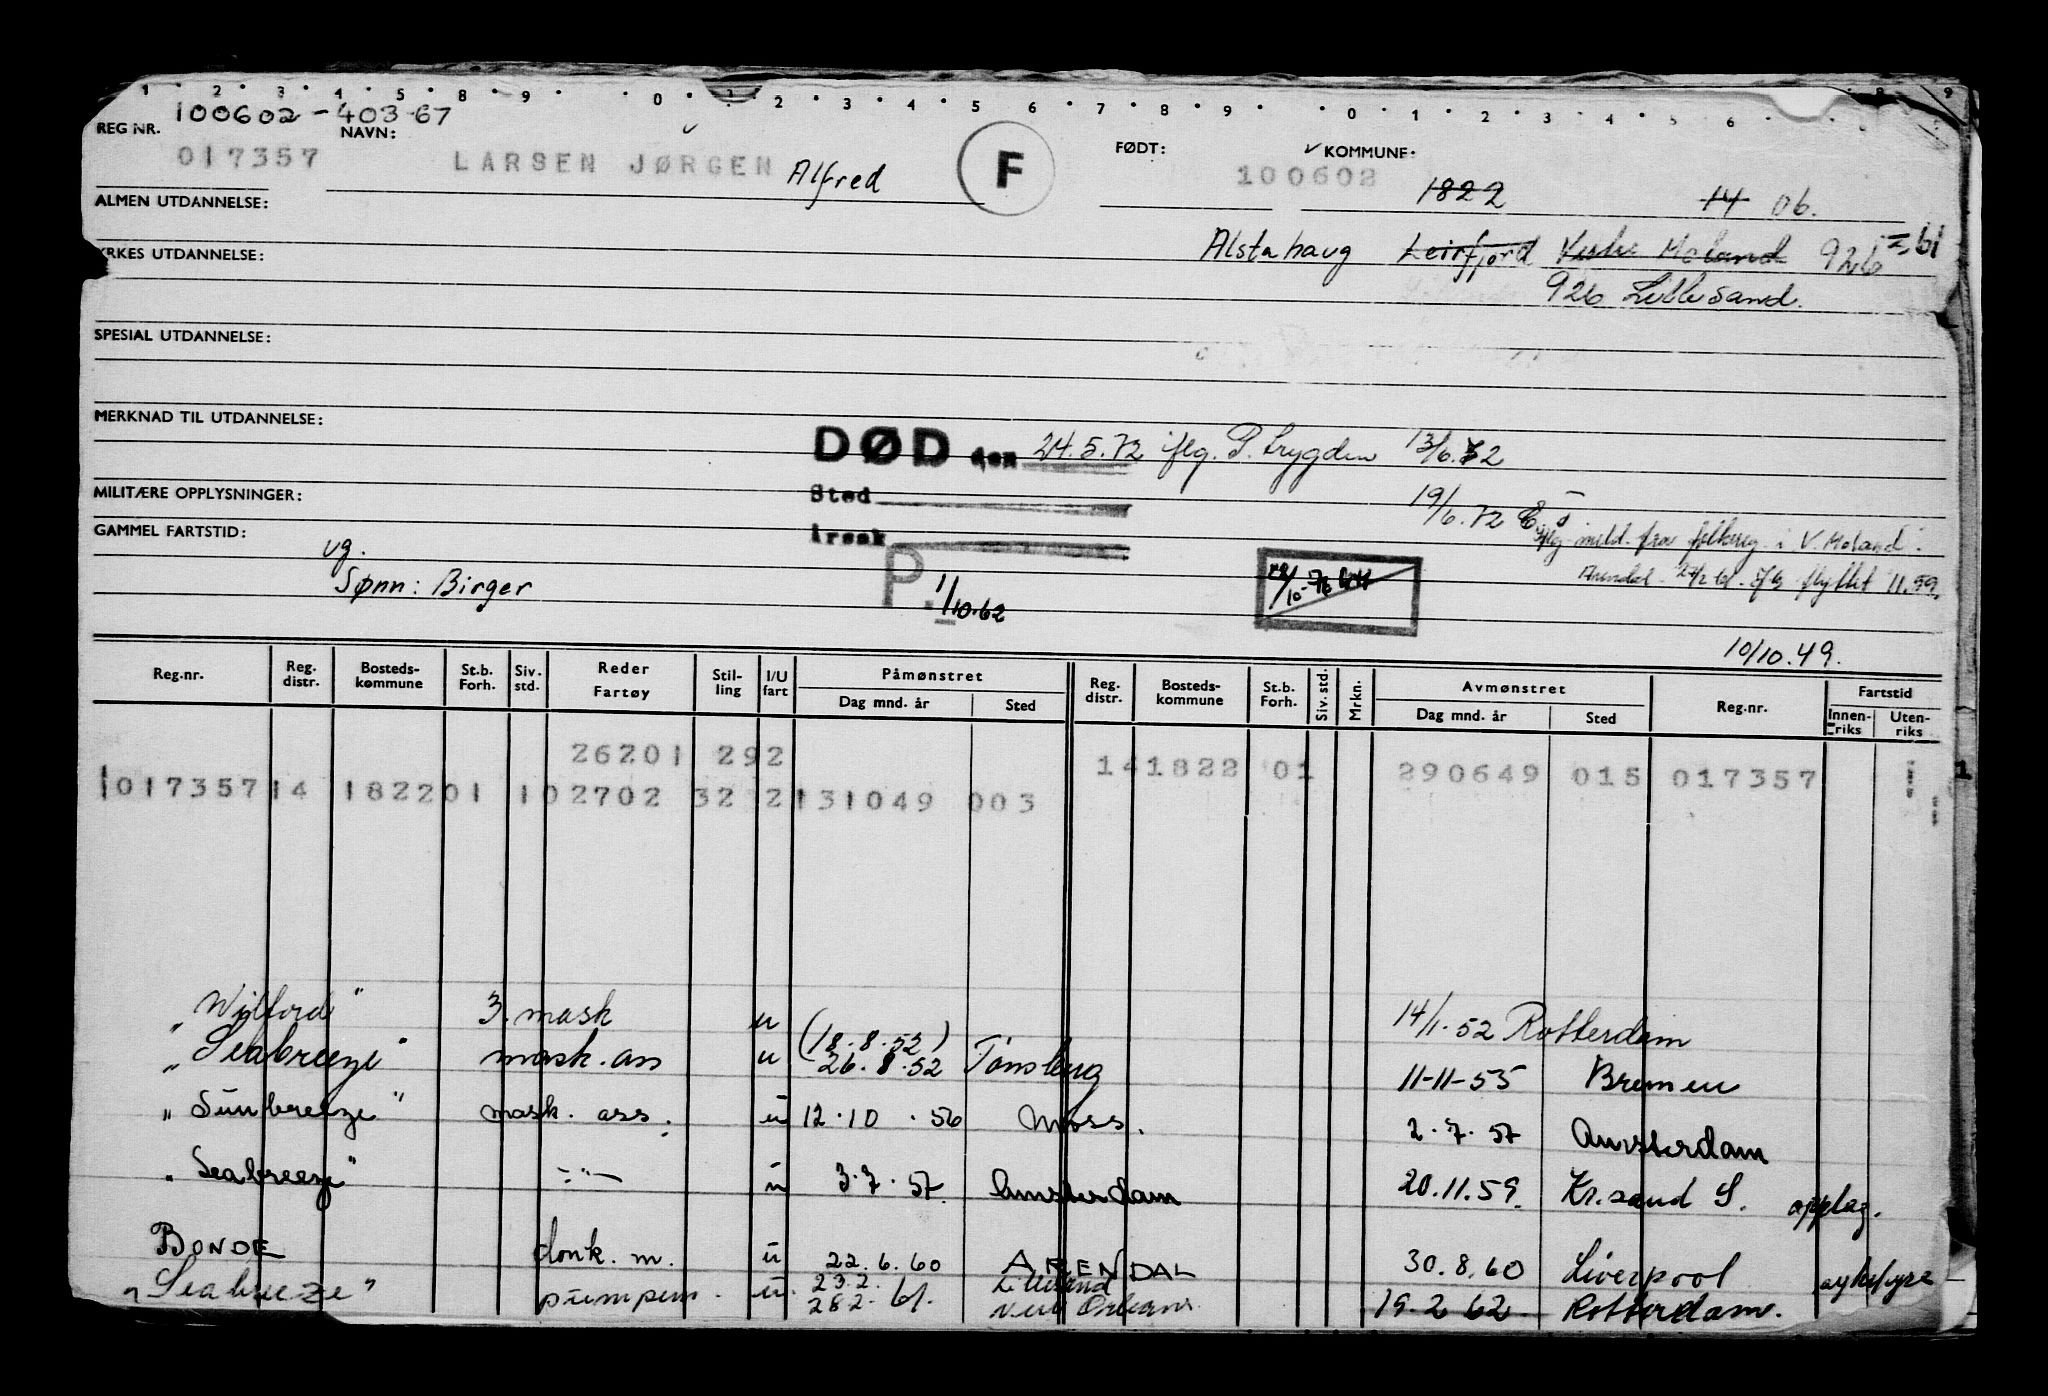 1 2 3 4 5 8 9 0 1 2 3 4 5 6 7 8 9 0 1 2 3 4 5 6 8 9
100602-403-67
REG NR. NAVN: FØDT: KOMMUNE:
017357 LARSEN JØRGEN Alfred F 100602 1822 14 06.
ALMEN UTDANNELSE:
Alstahaug Leirfjord Vestre Moland 926 = 61
YRKES UTDANNELSE:
926 Lillesand.
SPESIAL UTDANNELSE:
MERKNAD TIL UTDANNELSE:
DØD den 24.5.72 iflg. P. trygden 13/6.72
MILITÆRE OPPLYSNINGER: Sted 19/6.72
GAMMEL FARTSTID: Årsak iflg. meld. fra folkereg. i V. Moland.
vg. Arendal flyttet 11.59.
Sønn: Birger P. 1/10.62
10/10.49.
Reg.nr. Reg. distr. Bosteds-kommune St.b. Forh. Siv. std. Reder Fartøy Stil-ling I/U fart Påmønstret Reg. distr. Bosteds-kommune St.b. Forh. Siv. std. Mrkn. Avmønstret Reg.nr. Fartstid
Dag mnd. år Sted Dag mnd. år Sted Innen-riks Uten-riks
26201 292 141822 01 290649 015 017357
1017357 14 182201 102702 32 2 131049 003
"Wilford" 3. mask u 14/1.52 Rotterdam
"Seabreeze" mask. ass u (18.8.52) 26.8.52 Tønsberg 11-11-55 Bremen
"Sunbreeze" mask. ass. u 12.10.56 Moss. 2.7.57 Amsterdam
"Seabreeze" -"- u 3.7.57. Amsterdam 20.11.59. Kr.sand S. opplag.
BONDE donk. m. u 22.6.60 ARENDAL 30.8.60 Liverpool
"Seabreeze" pumpem. u. 23.2. Lillesand 28.2.61. New Orleans 19.2.62. Rotterdam.